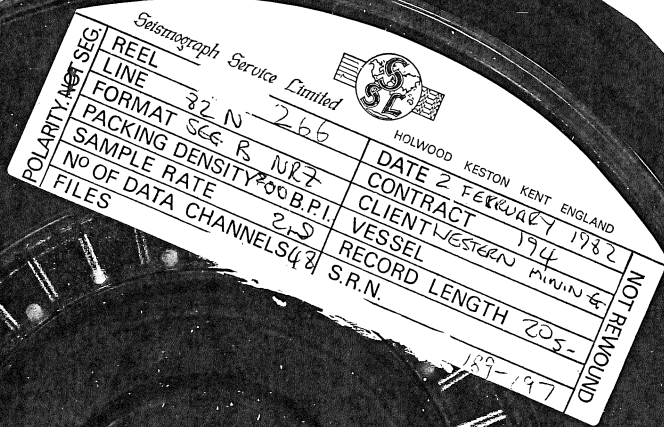 Seismograph Service Limited
SSL
HOLWOOD KESTON KENT ENGLAND
POLARITY. NOT SEG
REEL 266
LINE 82 N
FORMAT SEG B NRZ
PACKING DENSITY 800 B.P.I.
SAMPLE RATE
No OF DATA CHANNELS 48
FILES
DATE 2 FEBRUARY 1982
CONTRACT 194
CLIENT WESTERN MINING
VESSEL
RECORD LENGTH 20s-
S.R.N. 189-197
NOT REWOUND